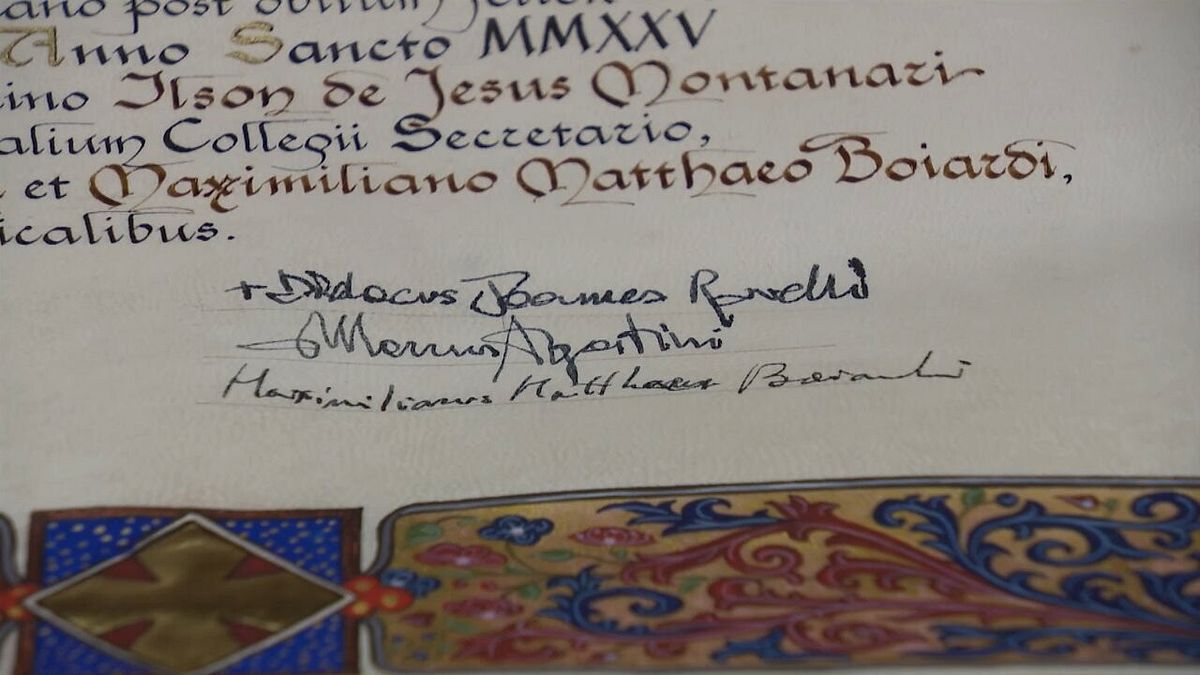 ano post obitum
Anno Sancto MMXXV
ino Ilson de Jesus Montanari
alium Collegii Secretario,
et Maximiliano Matthaeo Boiardi,
icalibus.
+ Didacus Joannes Ravelli
Marcus Agostini
Maximilianus Matthaeus Boiardi